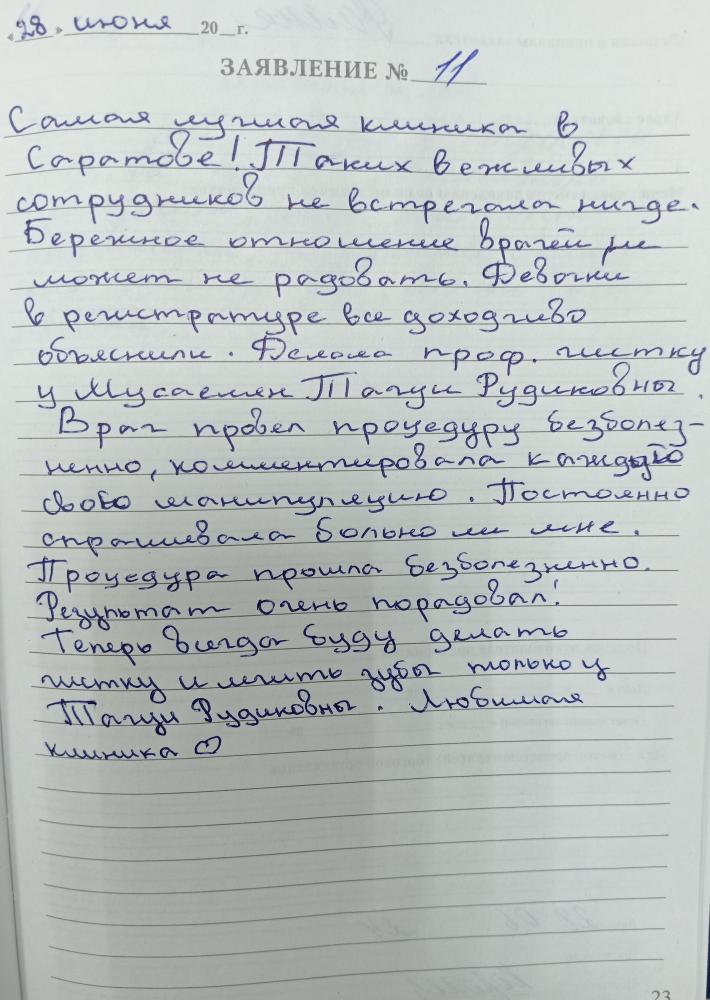 «28» июня 20__г.
ЗАЯВЛЕНИЕ № 11
Самая лучшая клиника в
Саратове! Таких вежливых
сотрудников не встречала нигде.
Бережное отношение врачей не
может не радовать. Девочки
в регистратуре все доходчиво
объяснили. Делала проф. чистку
у Мусаелян Тагуи Рудиковны.
Врач провел процедуру безболез-
ненно, комментировала каждую
свою манипуляцию. Постоянно
спрашивала больно ли мне.
Процедура прошла безболезненно.
Результат очень порадовал!
Теперь всегда буду делать
чистку и лечить зубы только у
Тагуи Рудиковны. Любимая
клиника ♡
23